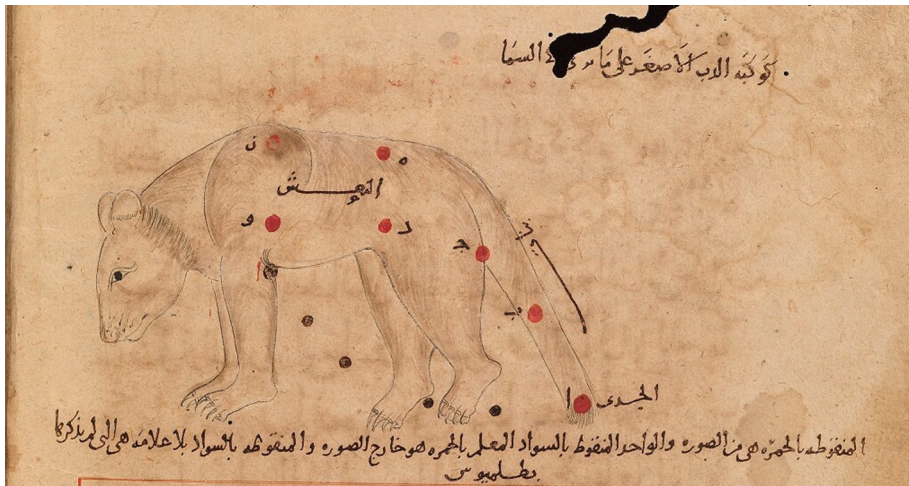 كوكبه الدب الاصغر على ما السما
ز
ه
النعش
و
د
ج
ب
ا
الجدى
المنقوطه بالحمره هى من الصوره والواحد المنقوط بالسواد المعلم بالحمره هو خارج الصوره والمنقوطه بالسواد بلا علامه هى التى لم يذكرها
بطلميوس